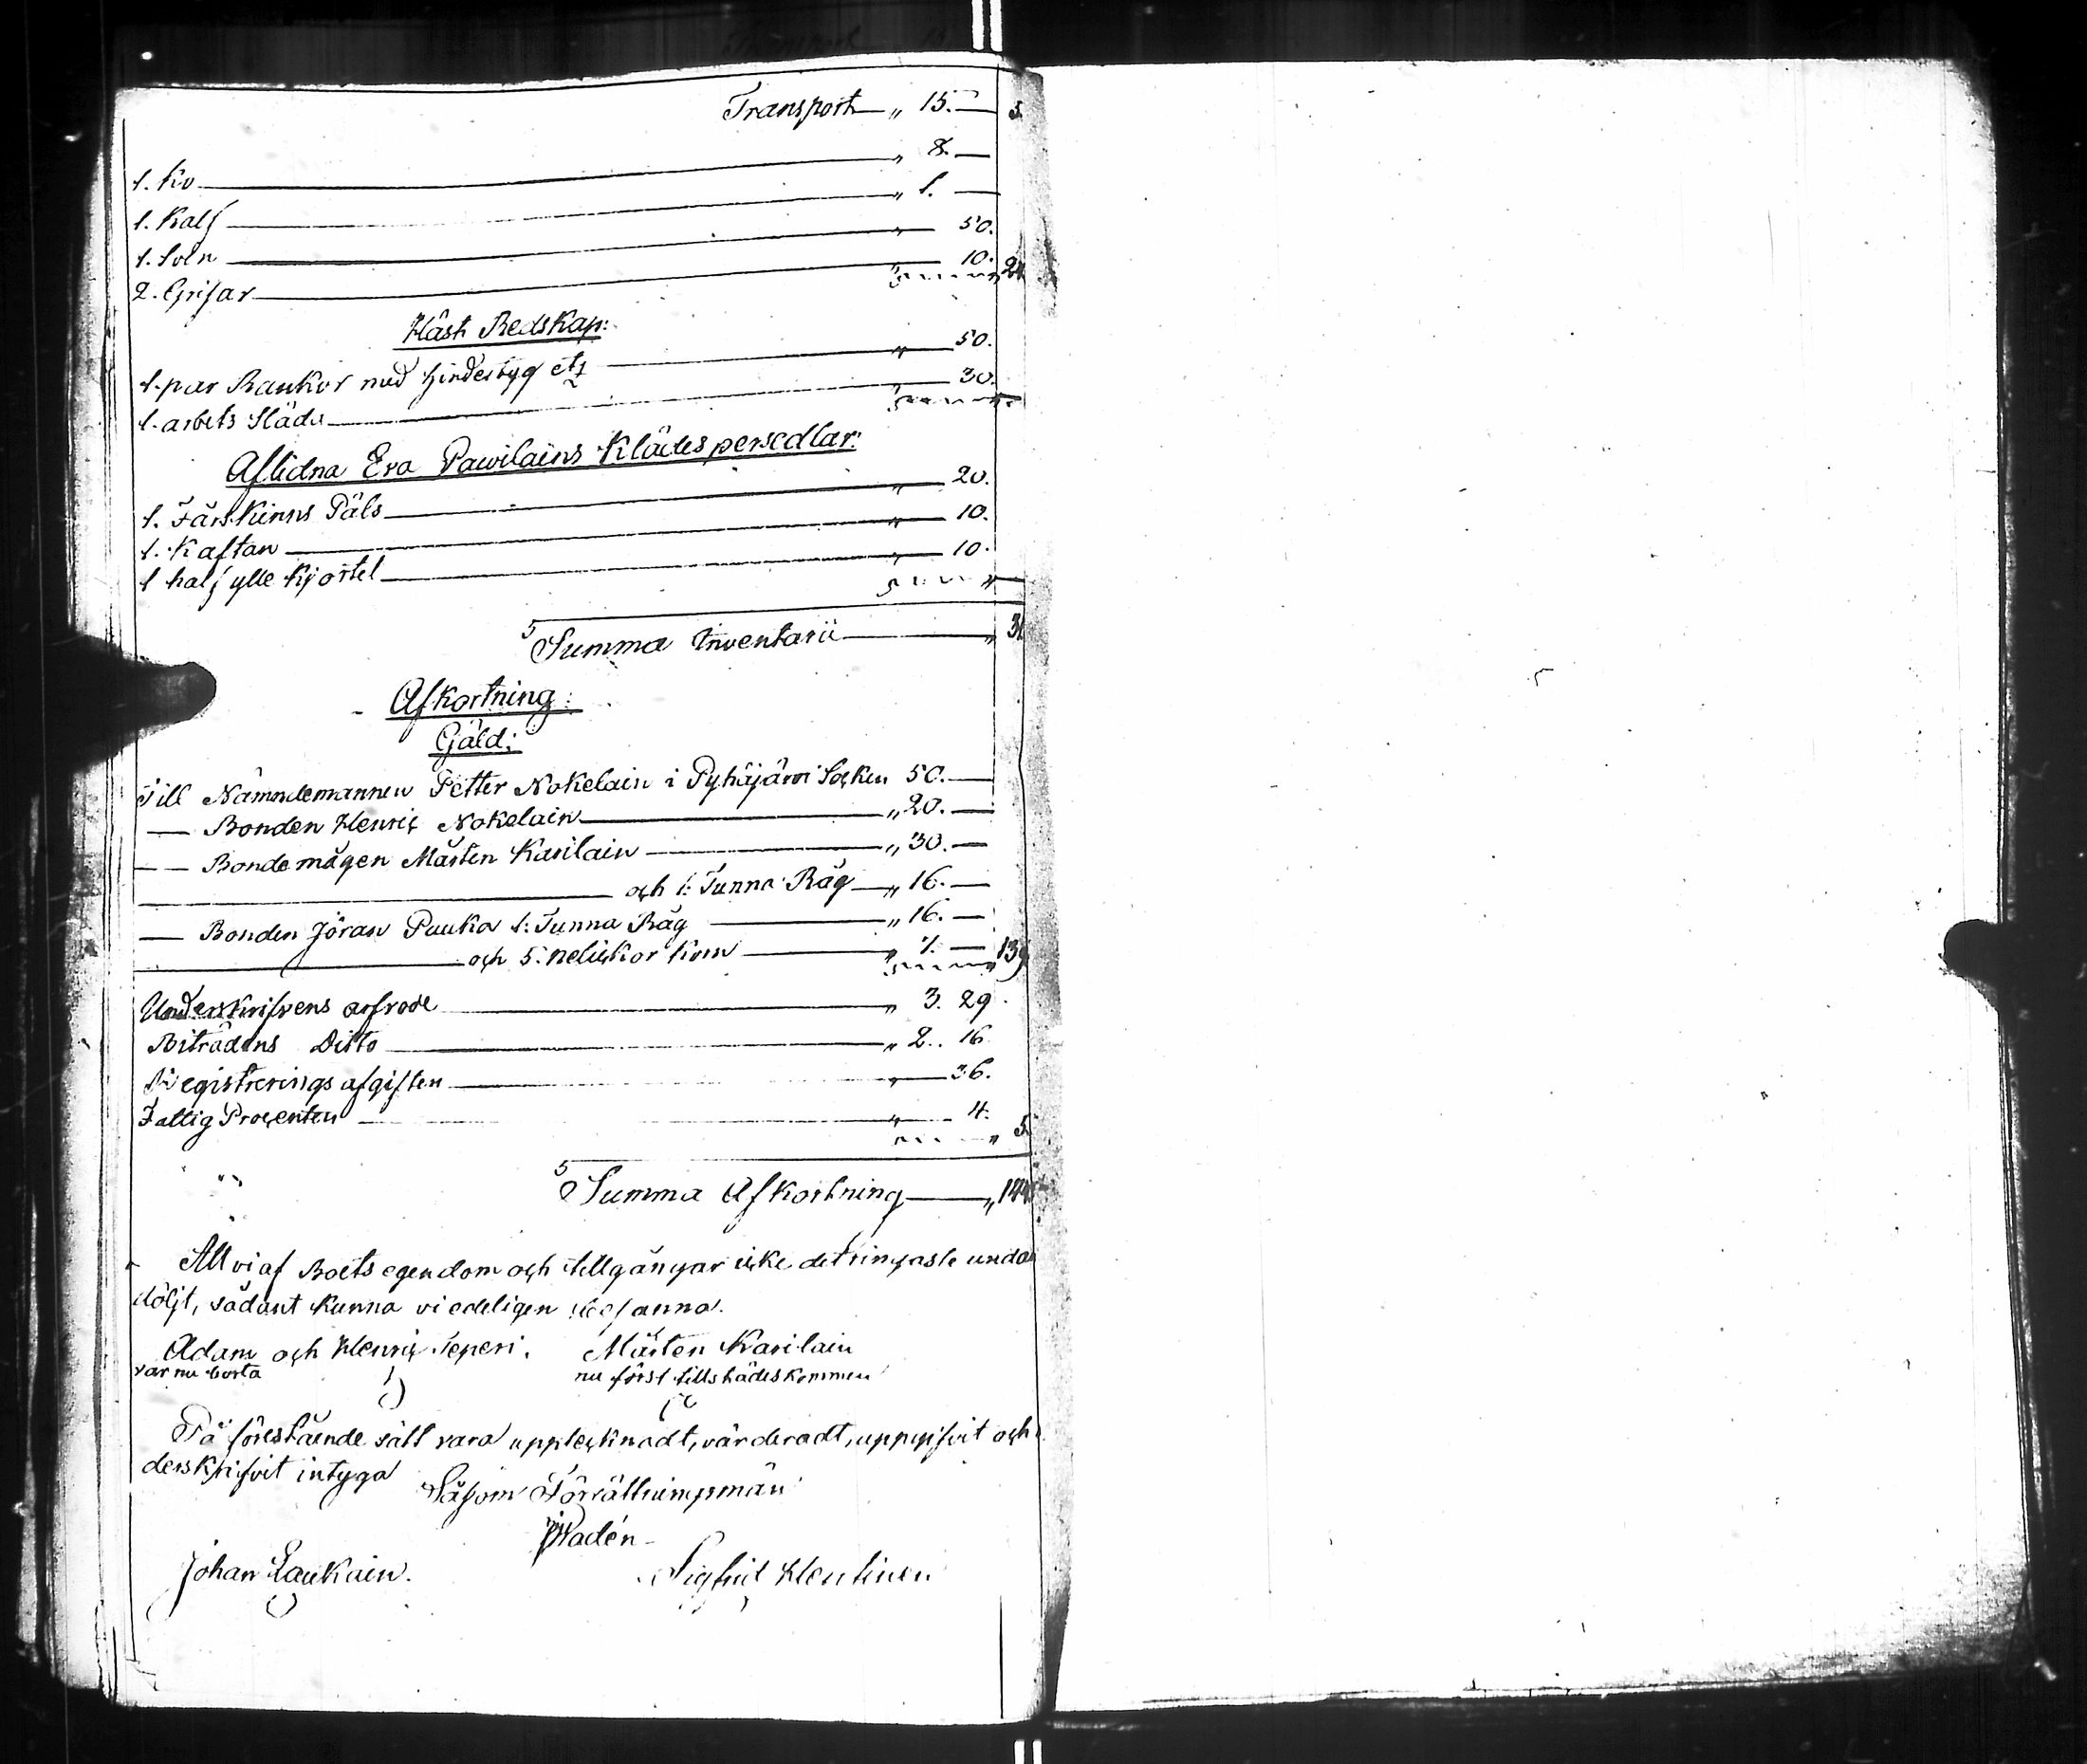 Transport — „ 15. — 5.
1. Ko — „ 8. —
1. Kalf — „ 1. —
1. Soen — „ — 50.
2. Grisar — „ — 10. 24
Häst Redskap:
1. par Rankor med hindertyg etz — „ — 50.
1. arbets Släda — 30.
Aflidna Eva Pawilains Klädespersedlar:
1. Fårskinns Päls — „ — 20.
1. Kaftan — „ — 10.
1 half ylle Kjortel — „ — 10.
Summa Inventarii — „ 31
Afkortning:
Gäld:
Till Nämndemannen Petter Nokelain i Pyhäjärvi Socken 50. —
— Bonden Henric Nokelain — „ 20. —
— — Bondemågen Mårten Karilain — „ 30. —
— och 1: Tunna Råg — „ 16. —
— Bonden Jöran Puuka 1: Tunna Råg — „ 16. —
— och 5: neliskor Korn — „ 7. — 139
Underskrifvens arfvode — „ 3. 29.
Biträdens Ditto — „ 2. 16
Registrerings afgiften — „ — 36.
Fattig Procenten — „ — 4.
„ 5.
Summa Afkortning — „ 144
Att vi af Boets egendom och tillgångar icke det ringaste undan
döljt, sådant kunna vi edeligen
Adam och Henric Teperi. Mårten Karilain
var nu borta nu först tillstädeskommen
På förestående sätt vara upptecknadt, värderadt, uppskrifvit och
derskrifvit intyga
Såsom Förrättningsmän
Wadén
Johan Laukain. Sigfrid Hentinen